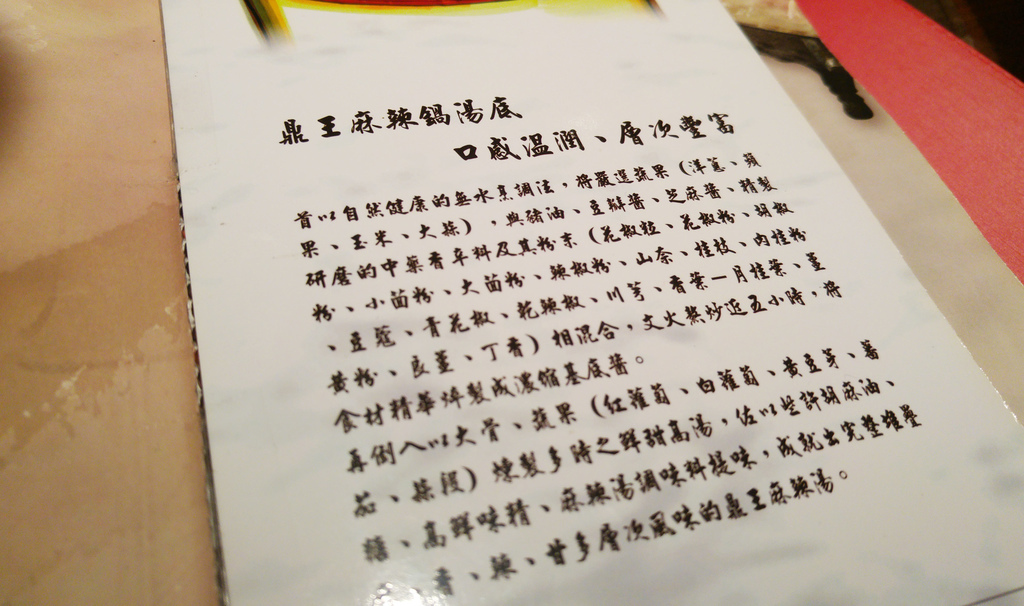 鼎王麻辣鍋湯底
口感溫潤、層次豐富
首以自然健康的無水烹調法，將嚴選蔬果（洋蔥、蘋
果、玉米、大蒜），與豬油、豆瓣醬、芝麻醬、精製
研磨的中藥香辛料及其粉末（花椒粒、花椒粉、胡椒
粉、小茴粉、大茴粉、辣椒粉、山奈、桂枝、肉桂粉
、豆蔻、青花椒、乾辣椒、川芎、香葉－月桂葉、薑
黃粉、良薑、丁香）相混合，文火熱炒近五小時，將
食材精華焠製成濃縮基底醬。
再倒入以大骨、蔬果（紅蘿蔔、白蘿蔔、黃豆芽、蕃
茄、蒜段）燉製多時之鮮甜高湯，佐以些許胡麻油、
糖、高鮮味精、麻辣湯調味料提味，成就出完整堆疊
香、辣、甘多層次風味的鼎王麻辣湯。